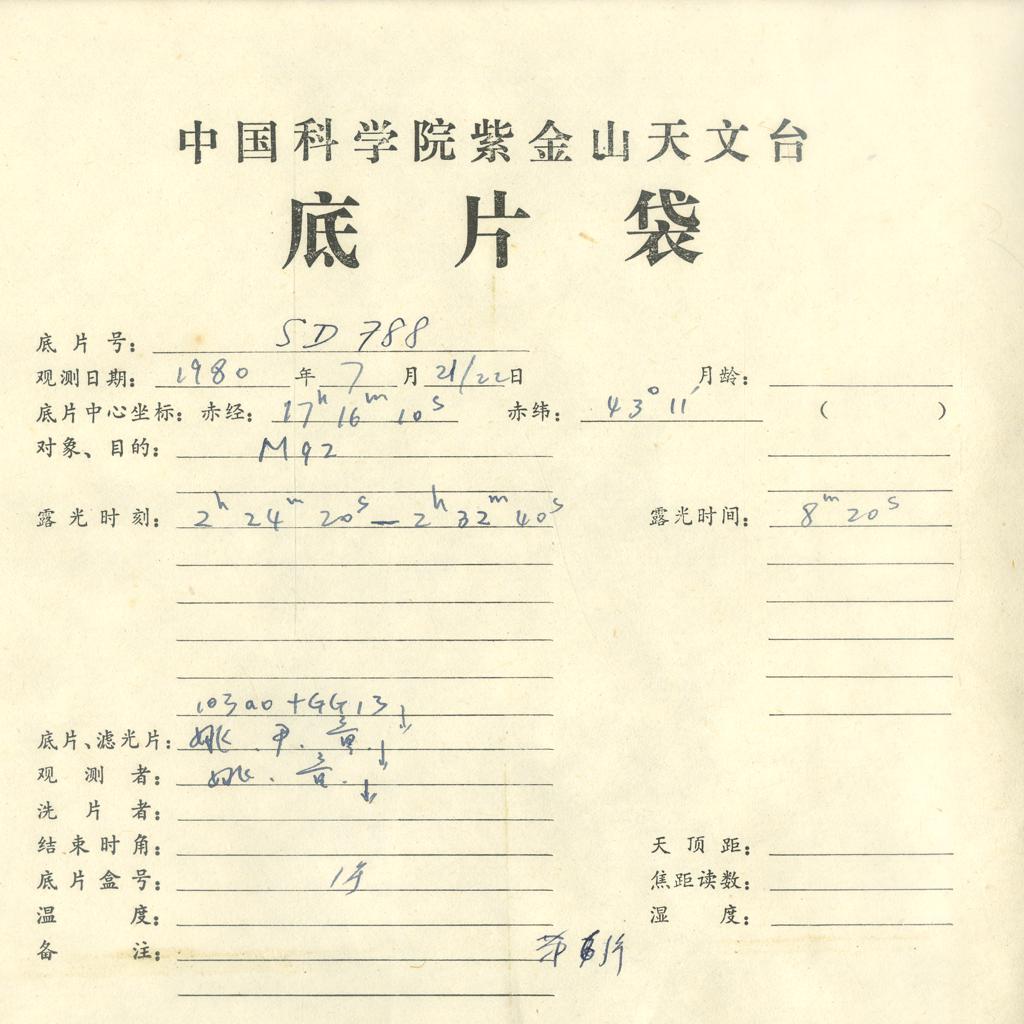 中国科学院紫金山天文台
底片袋
底片号： SD 788
观测日期： 1980 年 7 月 21/22日 月龄：
底片中心坐标： 赤经： 17h 16m 10s 赤纬： 43° 11′ （ ）
对象、目的： M92
露光时刻： 2h 24m 20s — 2h 32m 40s 露光时间： 8m 20s
103a0 + GG13 ↓
底片、滤光片： 姚 . 尹 . ↓
观测者： 姚 . ↓
洗片者：
结束时角： 天顶距：
底片盒号： 焦距读数：
温度： 湿度：
备注：